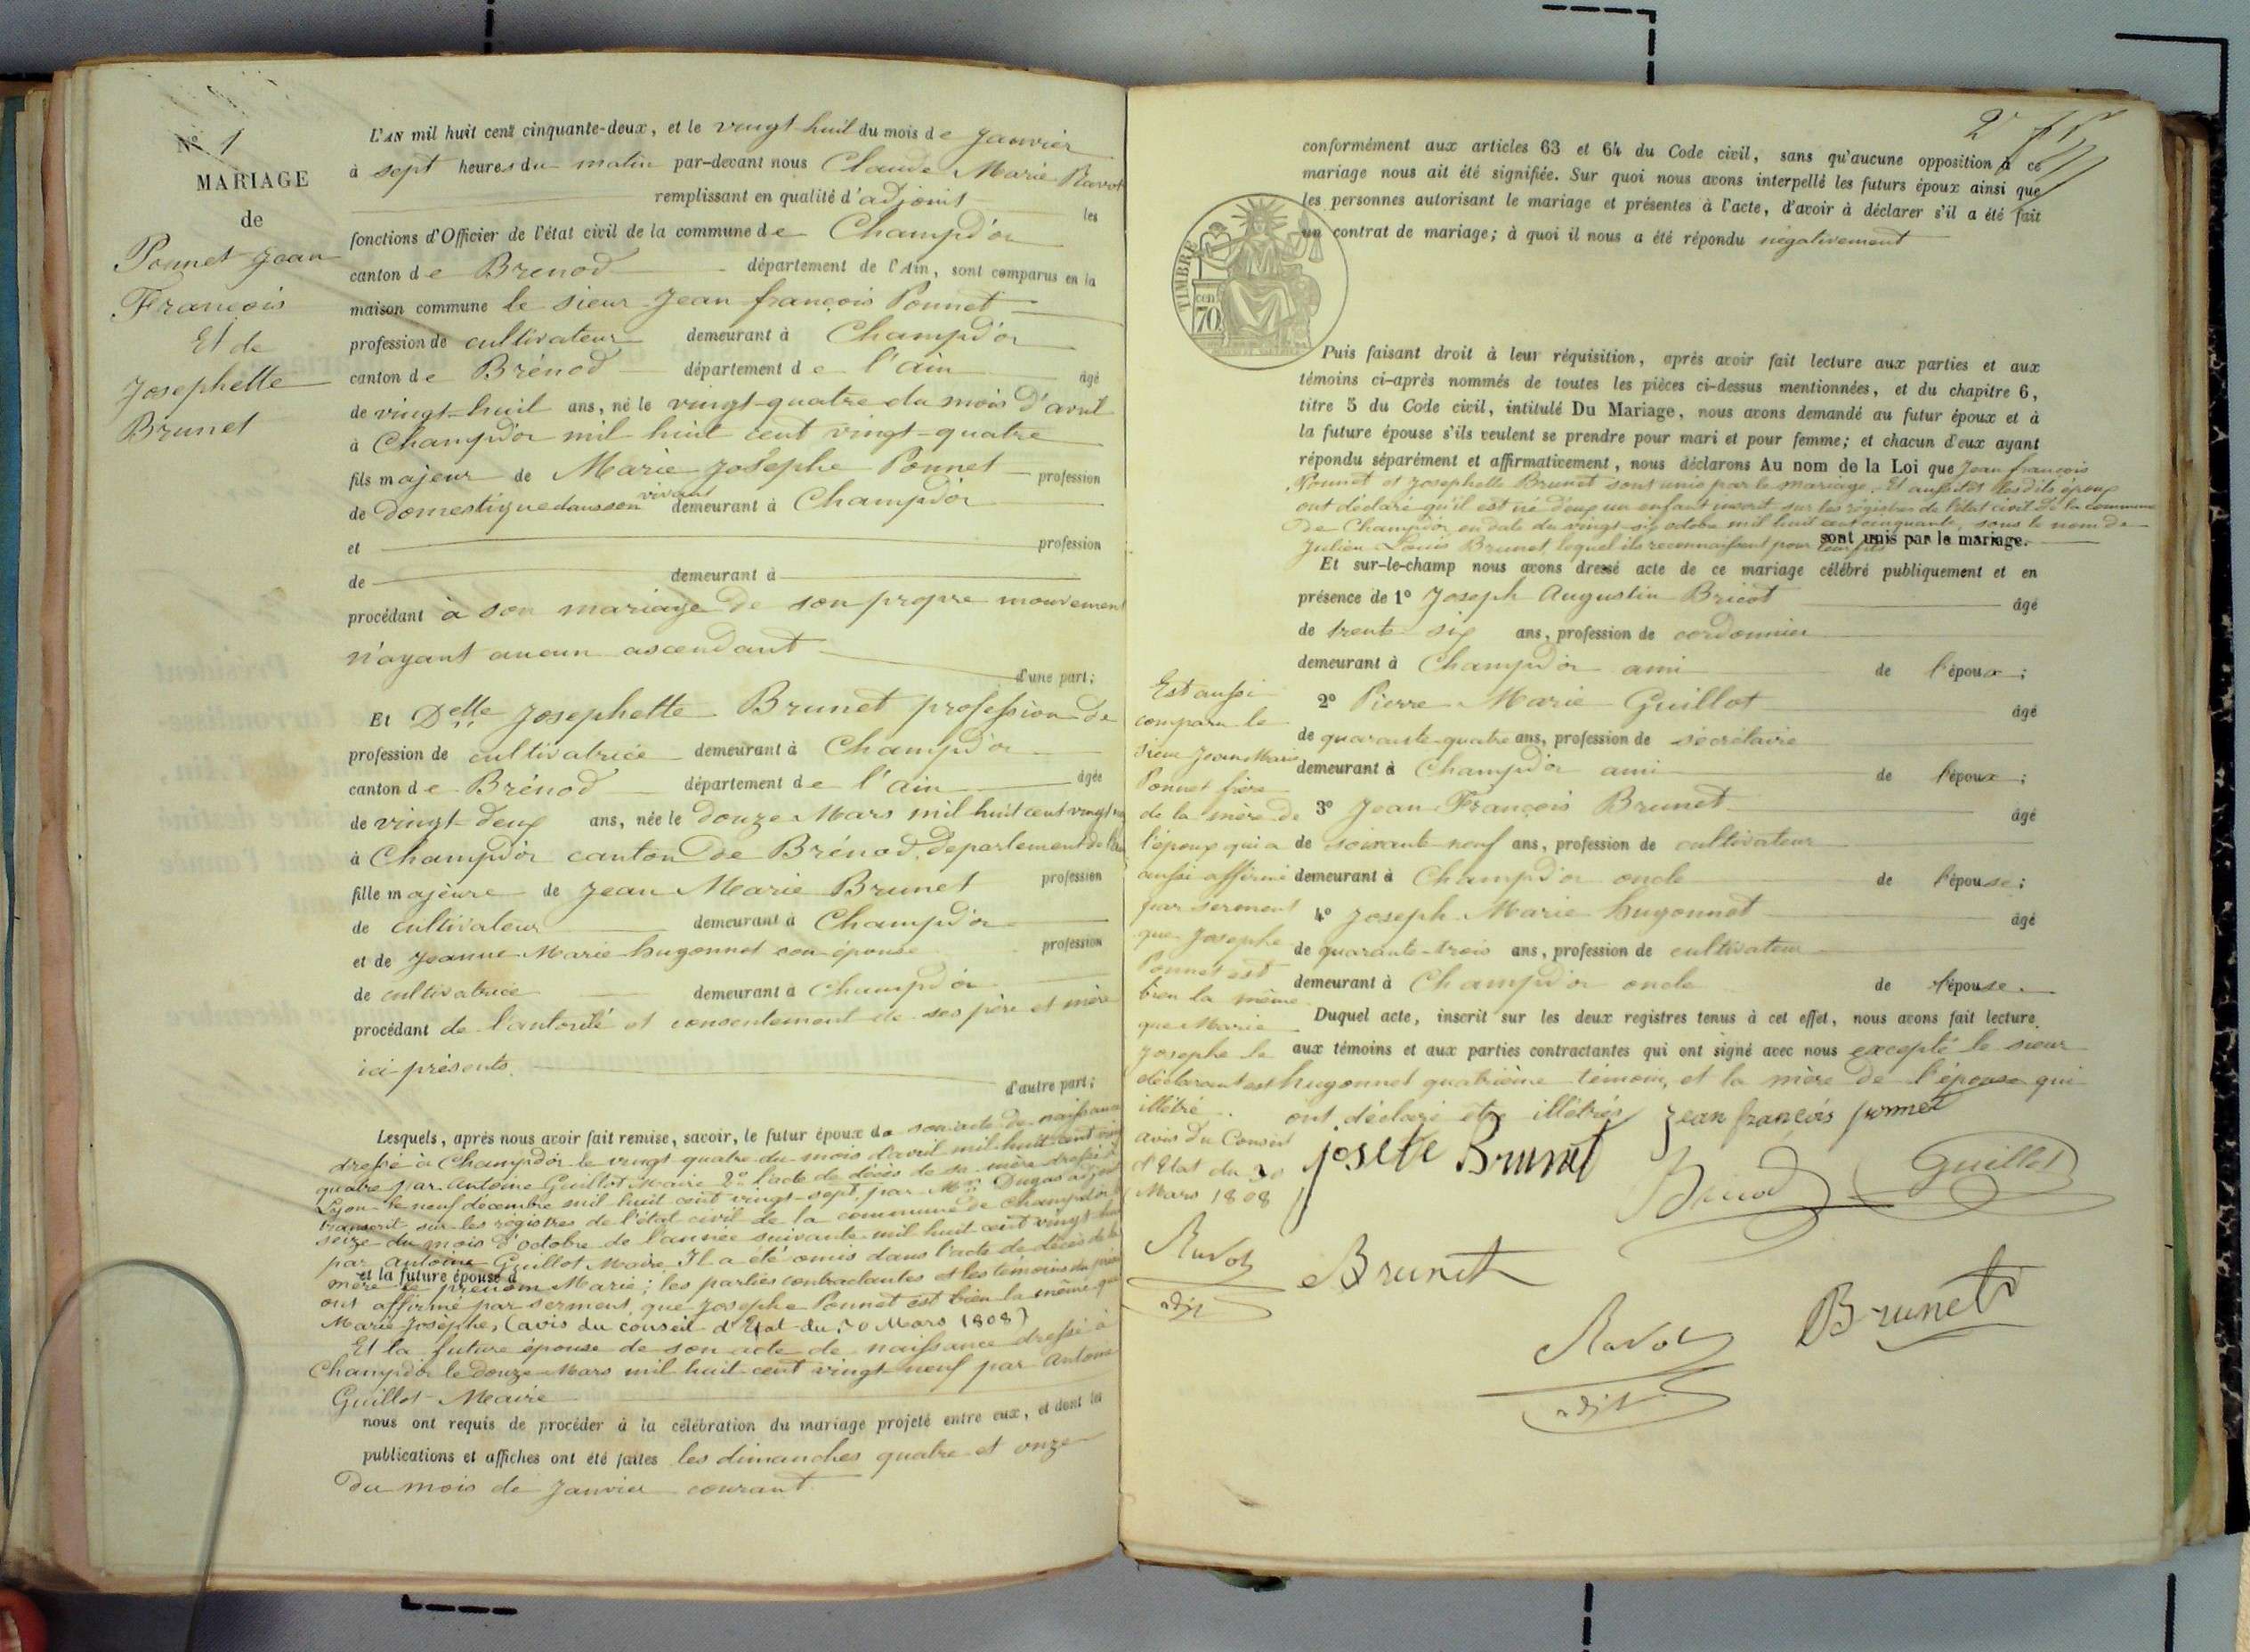 N° 1
MARIAGE
de
Ponnet Jean
François
Et de
Josephette
Brunet
L'AN mil huit cent cinquante-deux, et le vingt huit du mois de Janvier
à sept heures du matin par-devant nous Claude Marie Ravot
remplissant en qualité d'adjoint les
fonctions d'Officier de l'état civil de la commune de Champd'or
canton de Brenod département de l'Ain, sont comparus en la
maison commune le sieur Jean françois Ponnet
profession de cultivateur demeurant à Champd'or
canton de Brénod département de l'ain âgé
de vingt-huit ans, né le vingt-quatre du mois d'avril
à Champd'or mil huit cent vingt-quatre
fils majeur de Marie Josephe Ponnet profession
de domestique dans son vivant demeurant à Champd'or
et profession
de demeurant à
procédant à son mariage de son propre mouvement
n'ayant aucun ascendant
d'une part;
Et Delle Josephette Brunet profession de
profession de cultivatrice demeurant à Champd'or
canton de Brénod département de l'ain âgée
de vingt-deux ans, née le douze Mars mil huit cent vingt
à Champd'or canton de Brénod, département de l'ain
fille majeure de Jean Marie Brunet profession
de cultivateur demeurant à Champd'or
et de Jeanne Marie hugonnet son épouse profession
de cultivatrice demeurant à Champd'or
procédant de l'autorité et consentement de ses père et mère
ici présents.
d'autre part;
Lesquels, après nous avoir fait remise, savoir, le futur époux de son acte de naissance
dressé à Champd'or le vingt quatre du mois d'avril mil huit cent vingt
quatre par Antoine Guillot Maire 2° l'acte de décès de sa mère dressé à
Lyon le neuf décembre mil huit cent vingt-sept, par Mr Dugas adjoint
transcrit sur les régistres de l'état civil de la commune de Champd'or le
seize du mois d'octobre de l'année suivante mil huit cent vingt huit
par Antoine Guillot Maire. Il a été omis dans l'acte de décès de la
et la future épouse d
mère le prénom Marie; les parties contractantes et les témoins du présent
ont affirmé par serment, que Josephe Ponnet est bien la même que
Marie Josèphe, (avis du conseil d'Etat du 30 Mars 1808)
Et la future épouse de son acte de naissance dressé à
Champd'or le douze Mars mil huit cent vingt-neuf par Antoine
Guillot Maire
nous ont requis de procéder à la célébration du mariage projeté entre eux, et dont les
publications et affiches ont été faites les dimanches quatre et onze
du mois de Janvier courant.
2
conformément aux articles 63 et 64 du Code civil, sans qu'aucune opposition à ce
mariage nous ait été signifiée. Sur quoi nous avons interpellé les futurs époux ainsi que
les personnes autorisant le mariage et présentes à l'acte, d'avoir à déclarer s'il a été fait
un contrat de mariage; à quoi il nous a été répondu négativement
TIMBRE
70 cen
Puis faisant droit à leur réquisition, après avoir fait lecture aux parties et aux
témoins ci-après nommés de toutes les pièces ci-dessus mentionnées, et du chapitre 6,
titre 5 du Code civil, intitulé Du Mariage, nous avons demandé au futur époux et à
la future épouse s'ils veulent se prendre pour mari et pour femme; et chacun d'eux ayant
répondu séparément et affirmativement, nous déclarons Au nom de la Loi que Jean françois
Ponnet et Josephette Brunet sont unis par le mariage. Et aussitôt lesdits époux
ont déclaré qu'il est né d'eux un enfant inscrit sur les régistres de l'état civil de la commune
de Champd'or, en date du vingt-six octobre mil huit cent cinquante, sous le nom de
Julien Louis Brunet, lequel ils reconnaissent pour leur fils
sont unis par le mariage.
Et sur-le-champ nous avons dressé acte de ce mariage célébré publiquement et en
présence de 1° Joseph Augustin Bricot âgé
de trente six ans, profession de cordonnier
demeurant à Champd'or ami de l'époux;
2° Pierre Marie Guillot âgé
de quarante-quatre ans, profession de sécrétaire
demeurant à Champd'or ami de l'époux;
3° Jean François Brunet âgé
de soixante-neuf ans, profession de cultivateur
demeurant à Champd'or oncle de l'épouse;
4° Joseph Marie hugonnet âgé
de quarante-trois ans, profession de cultivateur
demeurant à Champd'or oncle de l'épouse.
Duquel acte, inscrit sur les deux registres tenus à cet effet, nous avons fait lecture
aux témoins et aux parties contractantes qui ont signé avec nous excepté le sieur
hugonnet quatrième témoin, et la mère de l'épouse qui
ont déclaré être illétrés
Est aussi
comparu le
sieur Jean Marie
Ponnet frère
de la mère de
l'époux qui a
aussi affirmé
par serment
que Josephe
Ponnet est
bien la même
que Marie
Josephe le
déclarant est
illétré.
avis du Conseil
d'Etat du 30
Mars 1808
Ravot
adjt
Jean françois ponnet
josete Brunet
Bricot
Guillot
Brunet
Brunet
Ravot
adjt